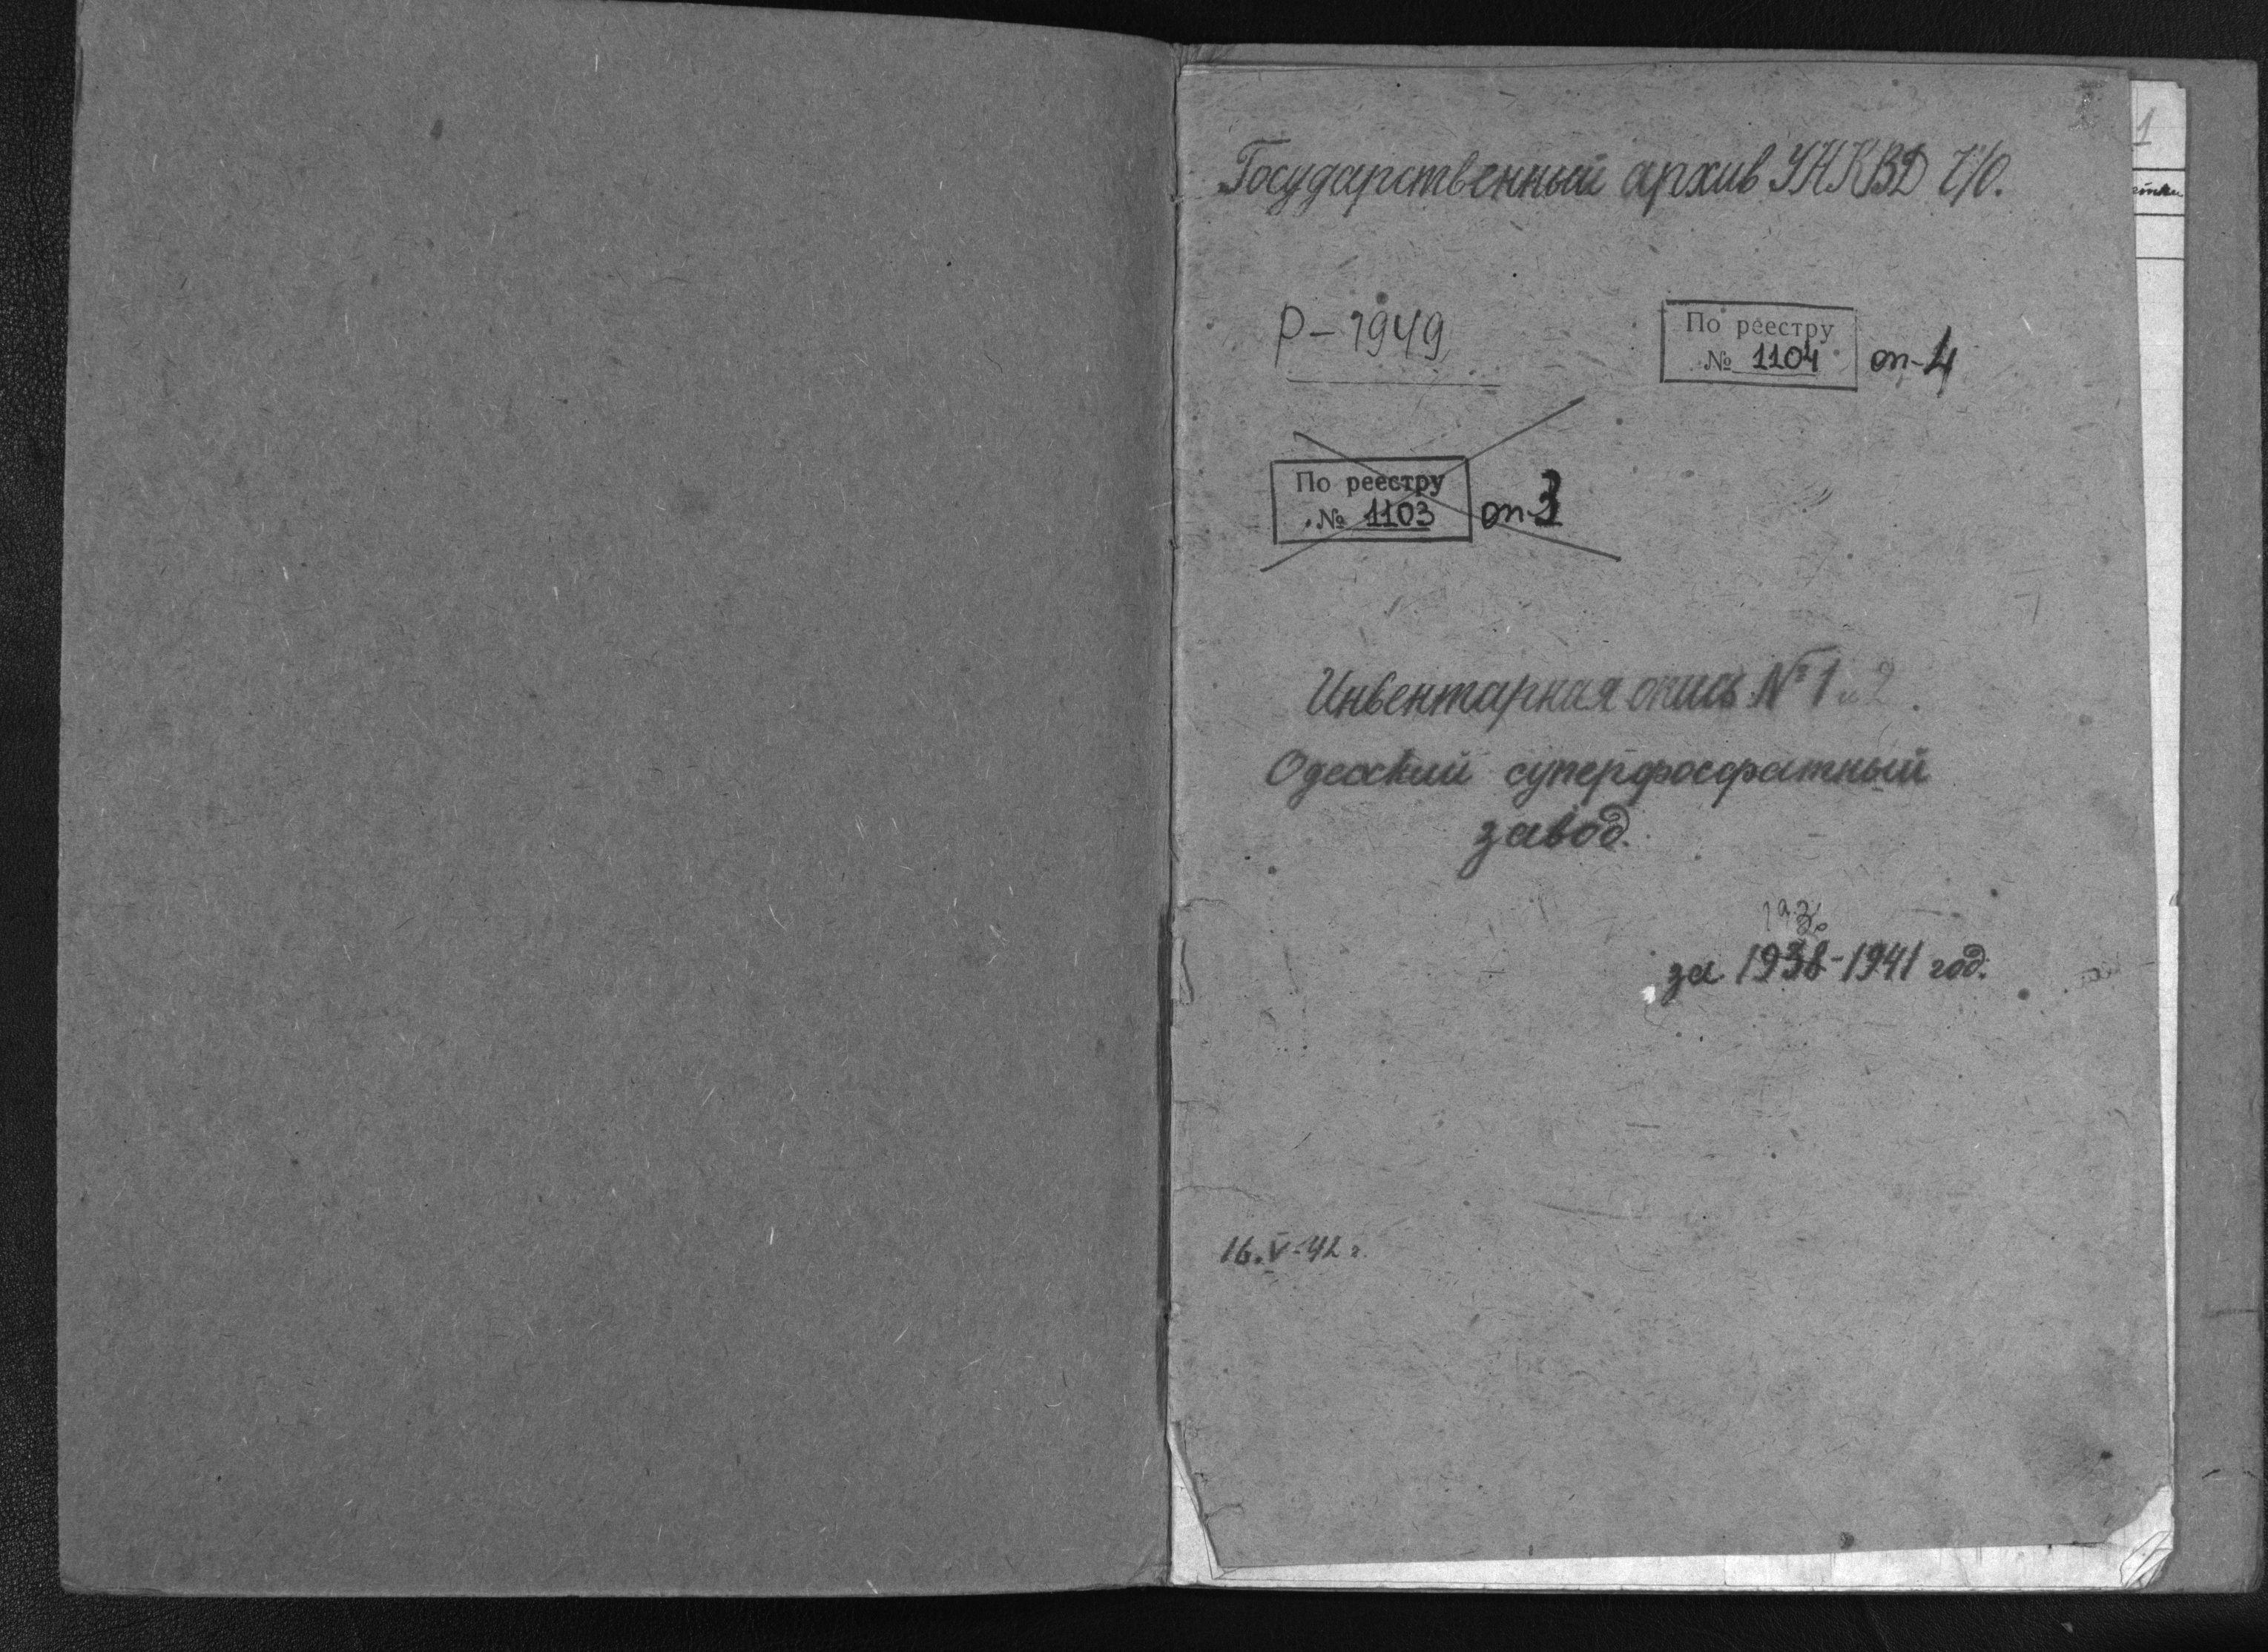 Государственный архив УНКВД Ч/О.
Р-1949
По реестру
№ 1104 оп-4
По реестру
№ 1103 оп-3
Инвентарная опись №1 и 2.
Одесский суперфосфатный
завод.
193
за 1938-1941 год.
16.V-42 г.
1